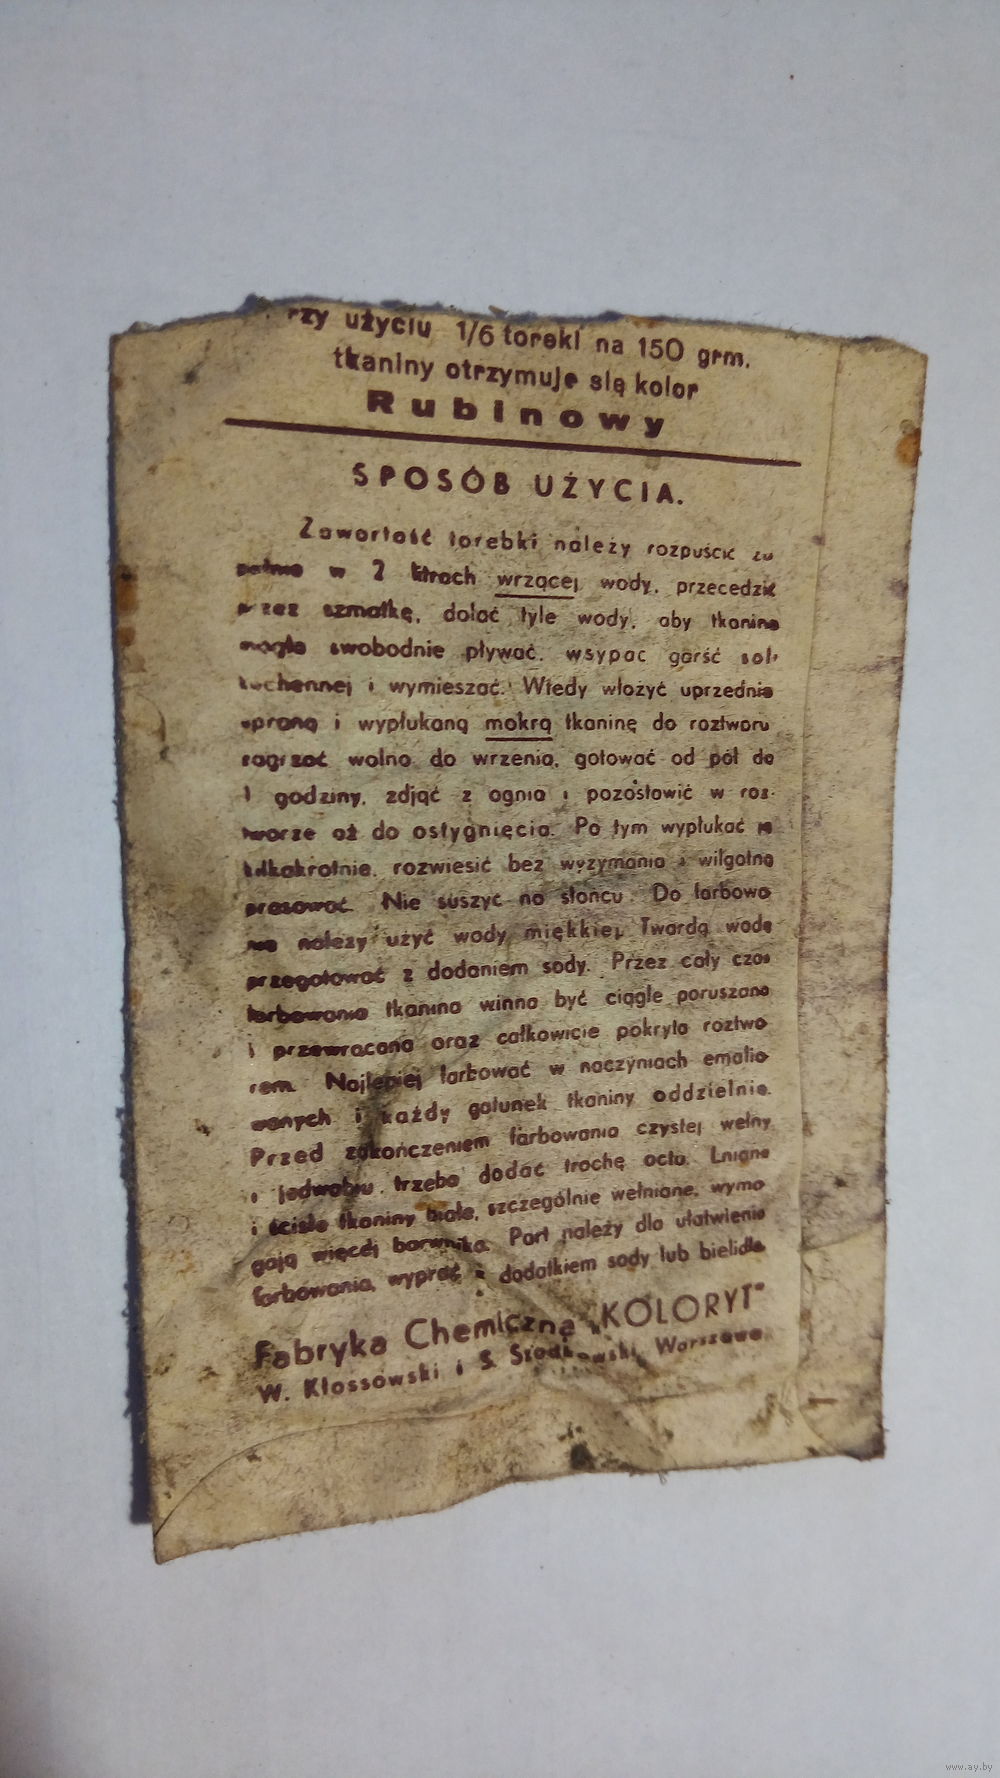 rzy użyciu 1/6 torebki na 150 grm.
tkaniny otrzymuje się kolor
Rubinowy
SPOSÓB UŻYCIA.
Zawartość torebki należy rozpuścić zu
pełnie w 2 litrach wrzącej wody, przecedzić
przez szmatkę, dolać tyle wody, aby tkanina
mogła swobodnie pływać, wsypać garść soli
kuchennej i wymieszać. Wtedy włożyć uprzednio
upraną i wypłukaną mokrą tkaninę do roztworu
zagrzać wolno do wrzenia, gotować od pół do
1 godziny, zdjąć z ognia i pozostawić w roz-
tworze aż do ostygnięcia. Po tym wypłukać ją
kilkakrotnie, rozwiesić bez wyżymania i wilgotną
prasować. Nie suszyć na słońcu. Do farbowa
nia należy użyć wody miękkiej. Twardą wodę
przegotować z dodaniem sody. Przez cały czas
farbowania tkanina winna być ciągle poruszana
i przewracana oraz całkowicie pokryta roztwo
rem. Najlepiej farbować w naczyniach emalio
wanych i każdy gatunek tkaniny oddzielnie.
Przed zakończeniem farbowania czystej wełny
i jedwabiu trzeba dodać trochę octu. Lniane
i ścisłe tkaniny białe, szczególnie wełniane, wyma
gają więcej barwnika. Part należy dla ułatwienia
farbowania, wyprać z dodatkiem sody lub bielidła
Fabryka Chemiczna „KOLORYT"
W. Kłossowski i S. Warszawa
www.ay.by